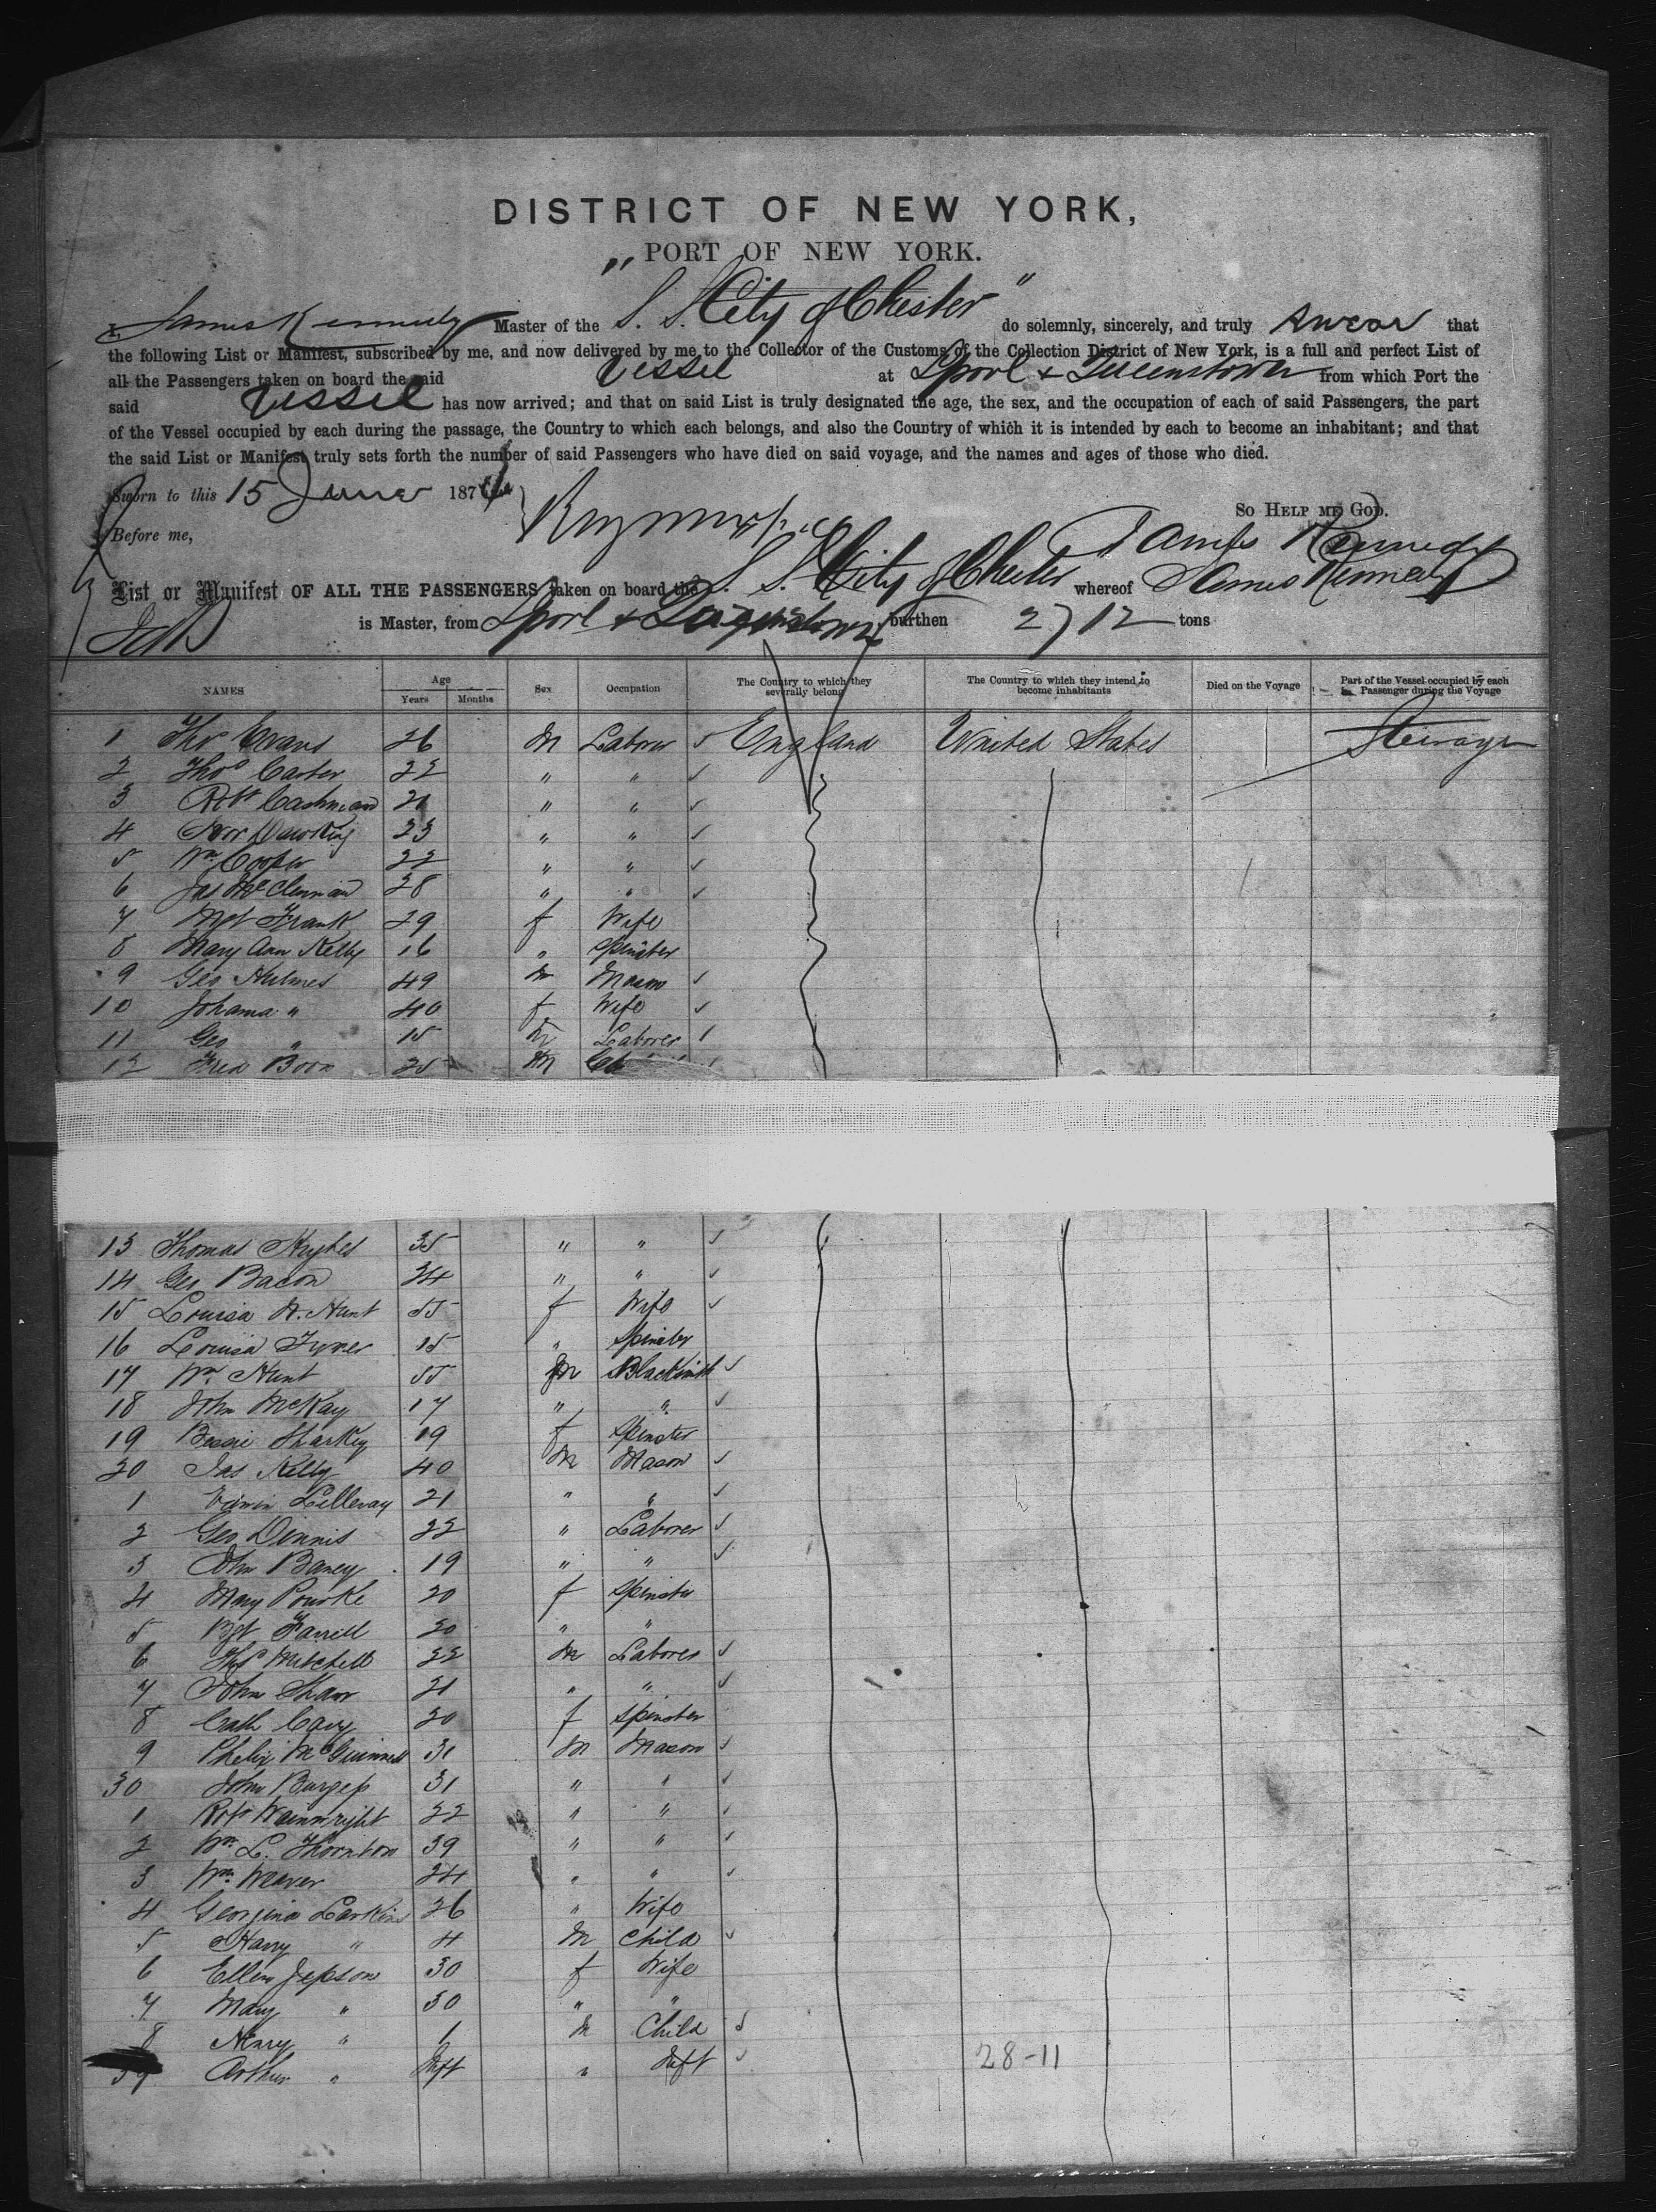 DISTRICT OF NEW YORK,
PORT OF NEW YORK.
I, James Kennedy Master of the "S. S. City of Chester" do solemnly, sincerely, and truly swear that
the following List or Manifest, subscribed by me, and now delivered by me to the Collector of the Customs of the Collection District of New York, is a full and perfect List of
all the Passengers taken on board the said Vessel at Lpool & Queenstown from which Port the
said Vessel has now arrived; and that on said List is truly designated the age, the sex, and the occupation of each of said Passengers, the part
of the Vessel occupied by each during the passage, the Country to which each belongs, and also the Country of which it is intended by each to become an inhabitant; and that
the said List or Manifest truly sets forth the number of said Passengers who have died on said voyage, and the names and ages of those who died.
Sworn to this 15 June 187
So Help me God.
Before me,
James Kennedy
List or Manifest OF ALL THE PASSENGERS taken on board the S. S. City of Chester whereof James Kennedy
is Master, from Lpool & Queenstown burthen 2712 tons
NAMES Age Years Months Sex Occupation The Country to which they severally belong The Country to which they intend to become inhabitants Died on the Voyage Part of the Vessel occupied by each Passenger during the Voyage
1 Thos Evans 26 M Laborer England United States Steerage
2 Thos Carter 22 " "
3 Robt Cashman 21 " "
4 Dawking 23 " "
5 Wm Cooper 22 " "
6 Jas McClennan 28 " "
7 Mgt Frank 29 f Wife
8 Mary Ann Kelly 16 " Spinster
9 Geo Hulmes 49 M Mason
10 Johana " 40 f Wife
11 Geo " 15 M Laborer
12 Fred Boon 25 M
13 Thomas Hughes 35 " "
14 Geo Bacon 34 " "
15 Louisa N. Hunt 55 f Wife
16 Louisa Tyner 15 " Spinster
17 Wm Hunt 55 M Blacksmith
18 John McKay 17 " "
19 Bessie Sharkey 19 f Spinster
20 Jas Kelly 40 M Mason
1 Edwin Lilleway 21 " "
2 Geo Dennis 22 " Laborer
3 John Baney 19 " "
4 Mary Rourke 20 f Spinster
5 Bgt Farrell 20 " "
6 Thos Mitchell 22 M Laborer
7 John Shaw 21 " "
8 Cath Cavy 20 f Spinster
9 Phelix McGuinness 31 M Mason
30 John Burgess 31 " "
1 Robt Wainwright 22 " "
2 Wm L. Thornton 39 " "
3 Wm Weaver 24 " "
4 Georgina Larkins 26 " Wife
5 Harry " 4 M Child
6 Ellen Jepson 30 f Wife
7 Mary " 30 " "
8 Henry " 1 M Child
39 Arthur " Inft " Inft
28-11